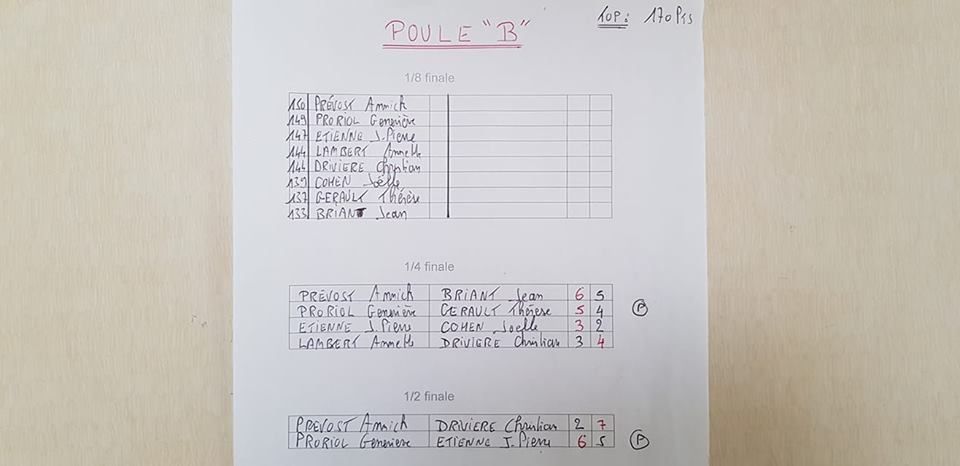 POULE "B"
TOP: 170 Pts
1/8 finale
150 PRÉVOST Annick
149 PRORIOL Geneviève
147 ETIENNE J.Pierre
144 LAMBERT Annette
144 DRIVIERE Christian
139 COHEN Joëlle
137 GERAULT Thérèse
133 BRIANT Jean
1/4 finale
PRÉVOST Annick BRIANT Jean 6 5
PRORIOL Geneviève GERAULT Thérèse 5 4
P
ETIENNE J.Pierre COHEN Joelle 3 2
LAMBERT Annette DRIVIERE Christian 3 4
1/2 finale
PREVOST Annick DRIVIERE Christian 2 7
PRORIOL Geneviève ETIENNE J.Pierre 6 5 P